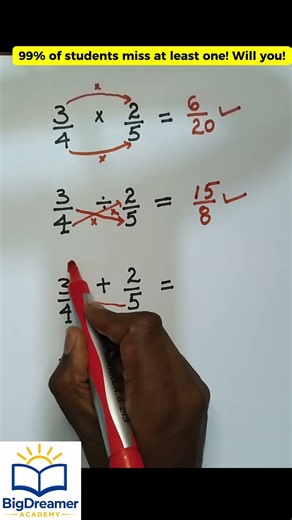 99% of students miss at least one! Will you!
3/4 x 2/5 = 6/20 ✓
3/4 ÷ 2/5 = 15/8 ✓
3/4 + 2/5 =
BigDreamer
ACADEMY